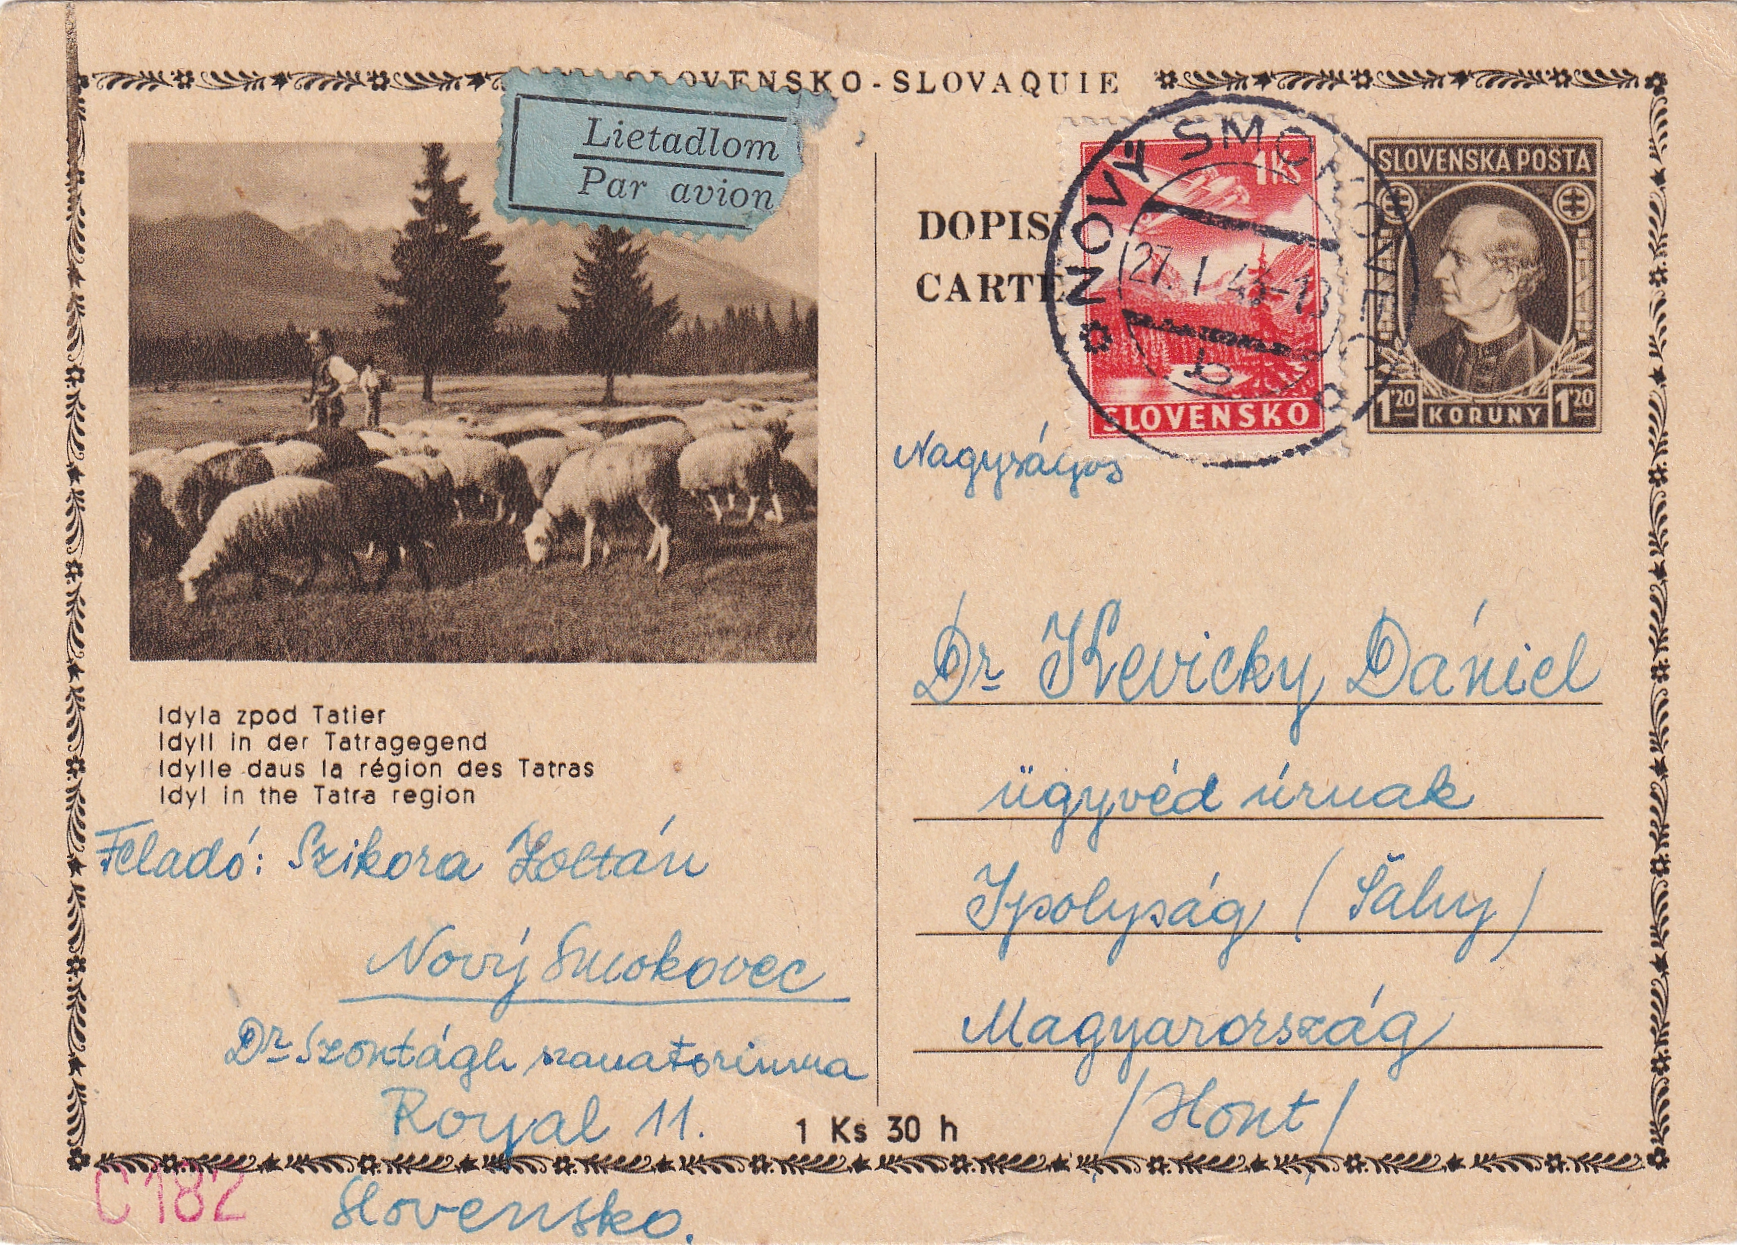 SLOVENSKO-SLOVAQUIE
Lietadlom
Par avion
DOPIS
CARTE
1 Ks
SLOVENSKO
NOVÝ SMOKOVEC
27. I 43-18
b
SLOVENSKÁ POŠTA
1²⁰ KORUNY 1²⁰
Idyla zpod Tatier
Idyll in der Tatragegend
Idylle daus la région des Tatras
Idyl in the Tatra region
Feladó: Szikora Zoltán
Nový Smokovec
Dr Szontágh szanatoriuma
Royal 11.
Slovensko.
1 Ks 30 h
C182
Nagyságos
Dr Kevicky Dániel
ügyvéd úrnak
Ipolyság (Šahy)
Magyarország
/Hont/